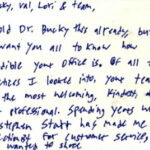 ky, Val, Lori, & team,
old Dr. Bucky this already, but
want you all to know how
edible your office is. Of all t
ctices I looked into, your tea
the most welcoming, kindest, a
professional. Spending years w
Staff has made me
for customer service,
wanted to share